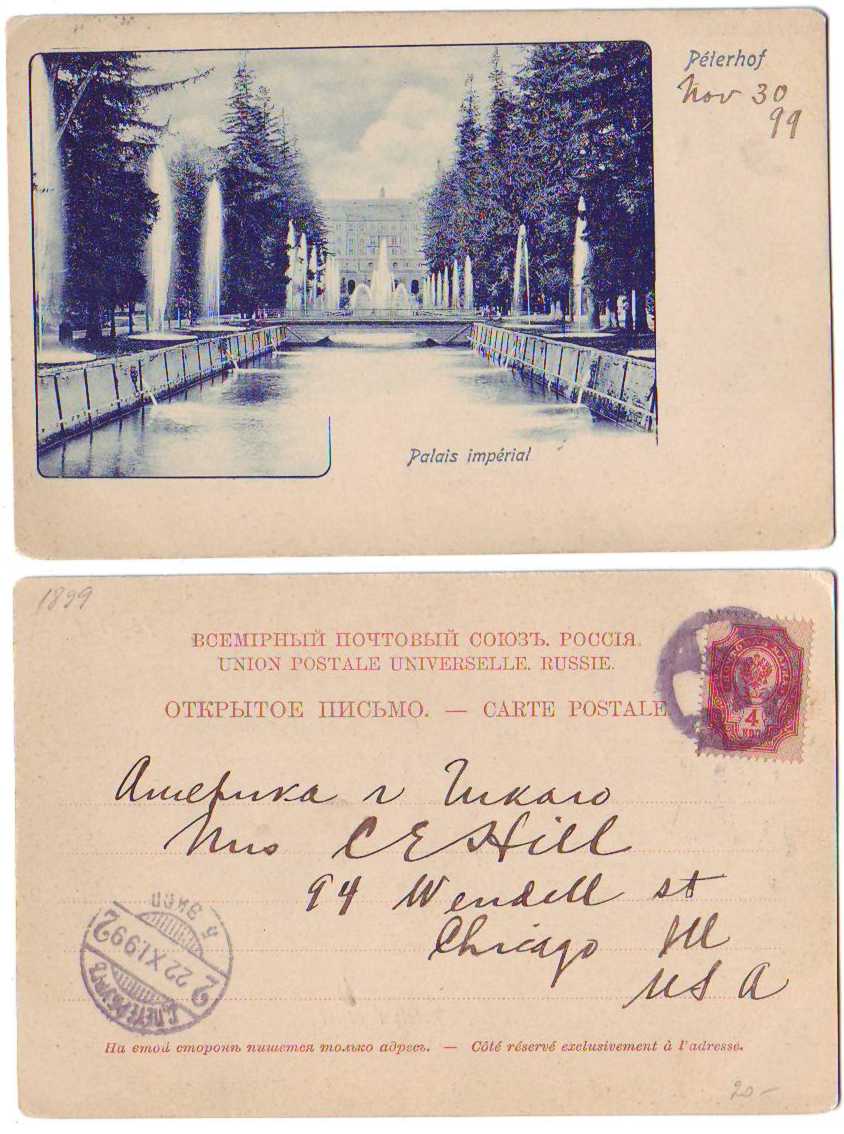 Péterhof
Nov 30
99
Palais impérial
1899
ВСЕМІРНЫЙ ПОЧТОВЫЙ СОЮЗЪ. РОССІЯ.
UNION POSTALE UNIVERSELLE. RUSSIE.
ОТКРЫТОЕ ПИСЬМО. — CARTE POSTALE
4
КОП
Америка г Чикаго
Mrs C E Hill
94 Wendell st
Chicago Ill
U S A
5 ЭКСП
2 22 XI.99 2
С.ПЕТЕРБУРГЪ
На этой сторонѣ пишется только адресъ. — Côté réservé exclusivement à l'adresse.
20 -